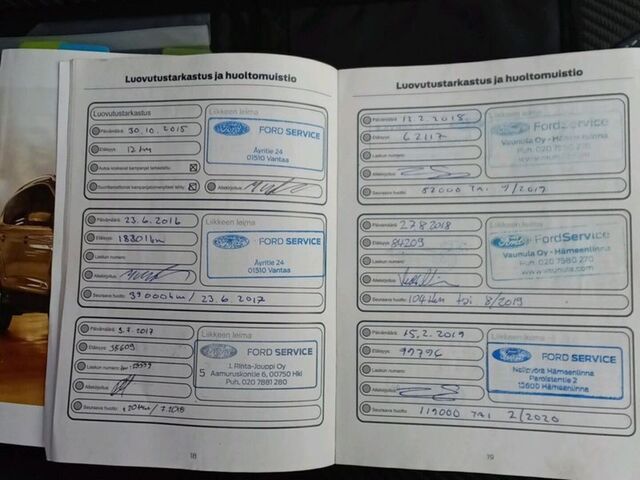 Luovutustarkastus ja huoltomuistio
Luovutustarkastus
Liikkeen leima
Päivämäärä 30.10.2015
Ajokm 12 km
Ford FORD SERVICE
Äyritie 24
01510 Vantaa
Allekirjoitus
Päivämäärä 23.6.2016
Liikkeen leima
18301 km
Laskun numero
Allekirjoitus
Ford FORD SERVICE
Äyritie 24
01510 Vantaa
Seuraava huolto 39000km / 23.6.2017
Päivämäärä 3.7.2017
Liikkeen leima
38609
Laskun numero
Allekirjoitus
FORD SERVICE
5 J. Rinta-Jouppi Oy
Aamuruskontie 6, 00750 Hki
Puh. 020 7881 280
Seuraava huolto / 7.2018
18
Luovutustarkastus ja huoltomuistio
Päivämäärä 12.2.2018
62117
Laskun numero
Allekirjoitus
FordService
Vaunula Oy - Hämeenlinna
Seuraava huolto 82000 TAI
Päivämäärä 27.8.2018
84209
Laskun numero
Allekirjoitus
Ford FordService
Vaunula Oy - Hämeenlinna
Puh. 020 7580 270
www.vaunula.com
Seuraava huolto 104 tkm tai 8/2019
Päivämäärä 15.2.2019
99796
Laskun numero
Allekirjoitus
Ford FORD SERVICE
Nelipyörä Hämeenlinna
Parolantie 2
13600 Hämeenlinna
Seuraava huolto 119000 TAI 2/2020
19